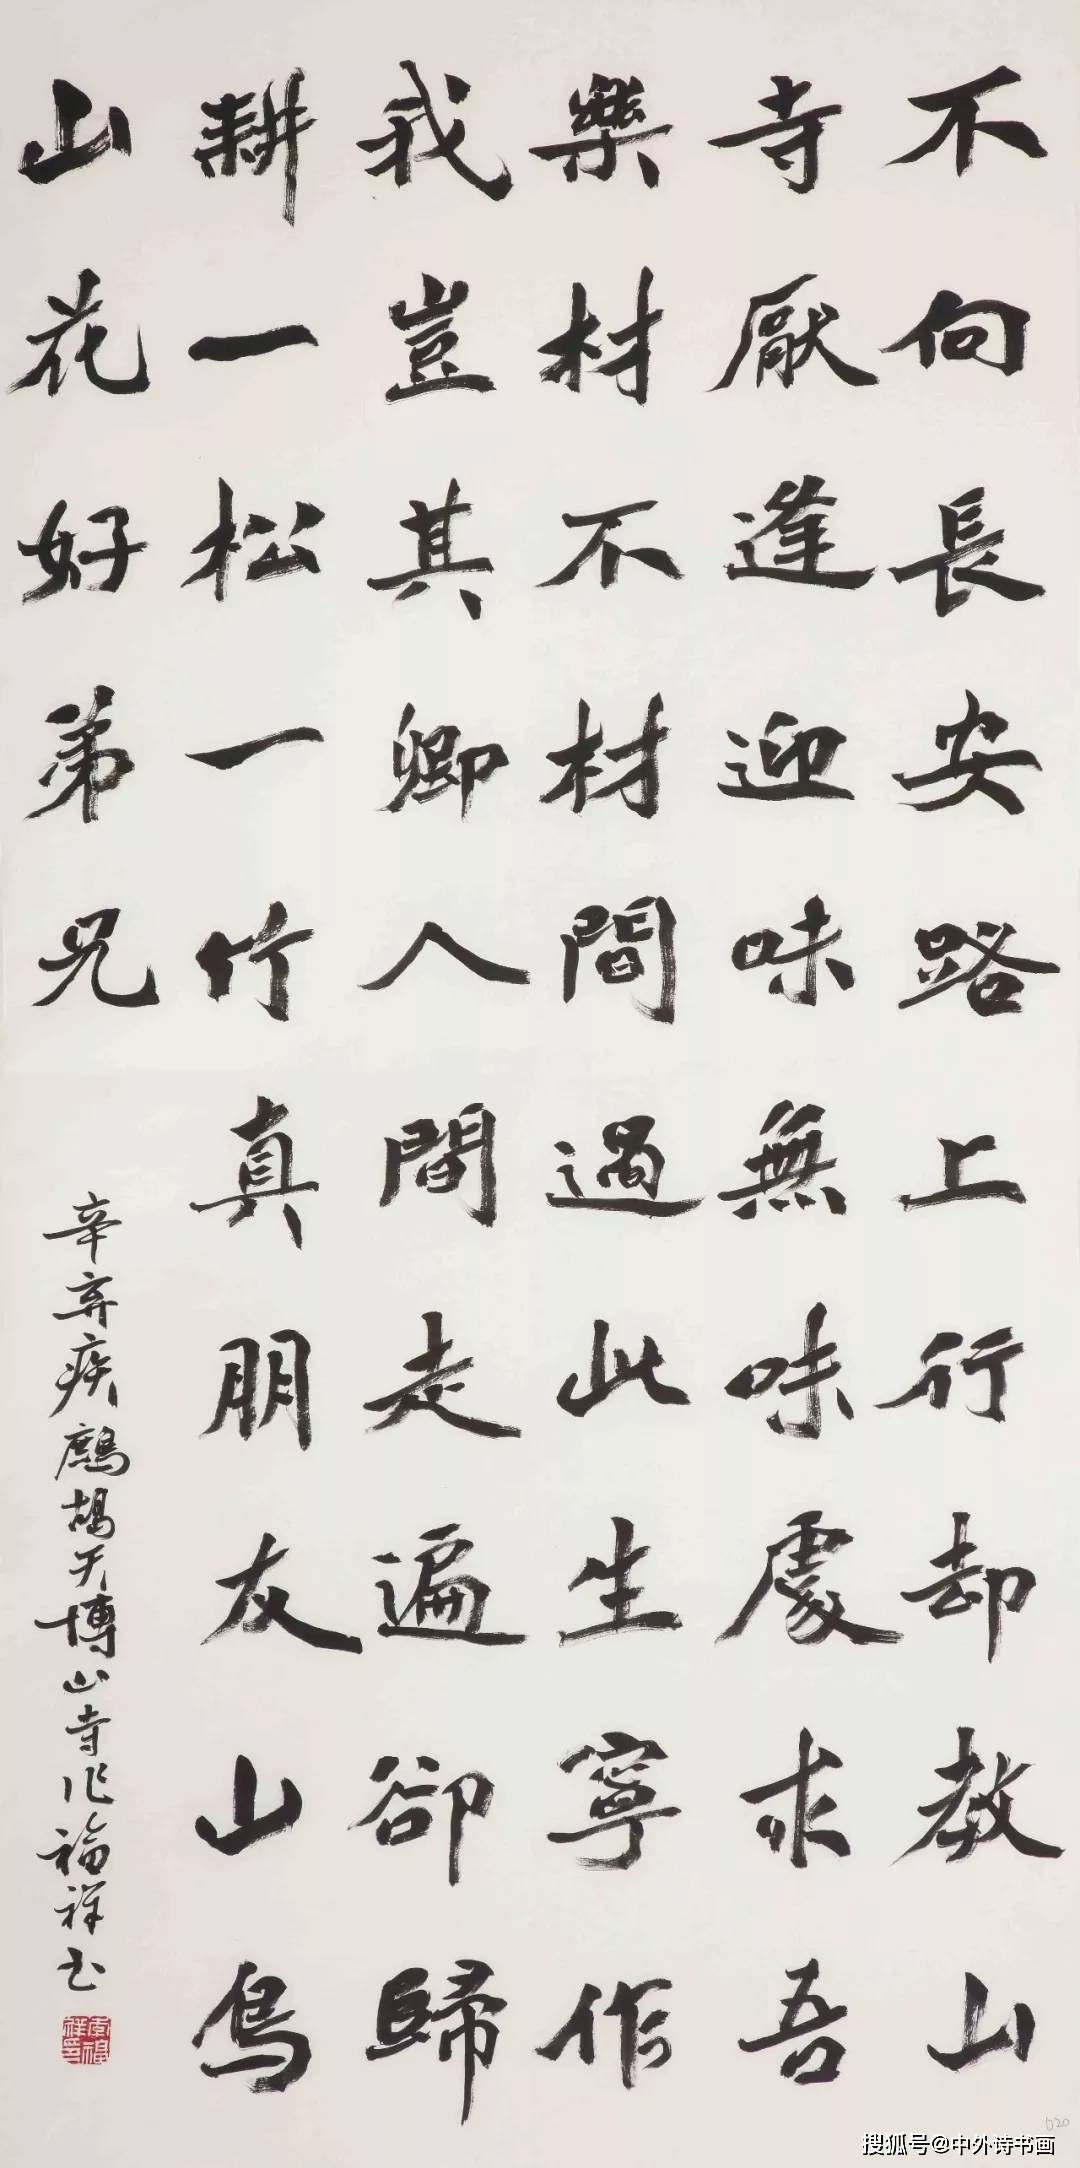 不向長安路上行却教山
寺厭逢迎味無味處求吾
樂材不材間過此生寧作
我豈其卿人間走遍卻歸
耕一松一竹真朋友山鳥
山花好弟兄
辛弃疾鷓鴣天博山寺作福祥书
020
搜狐号@中外诗书画